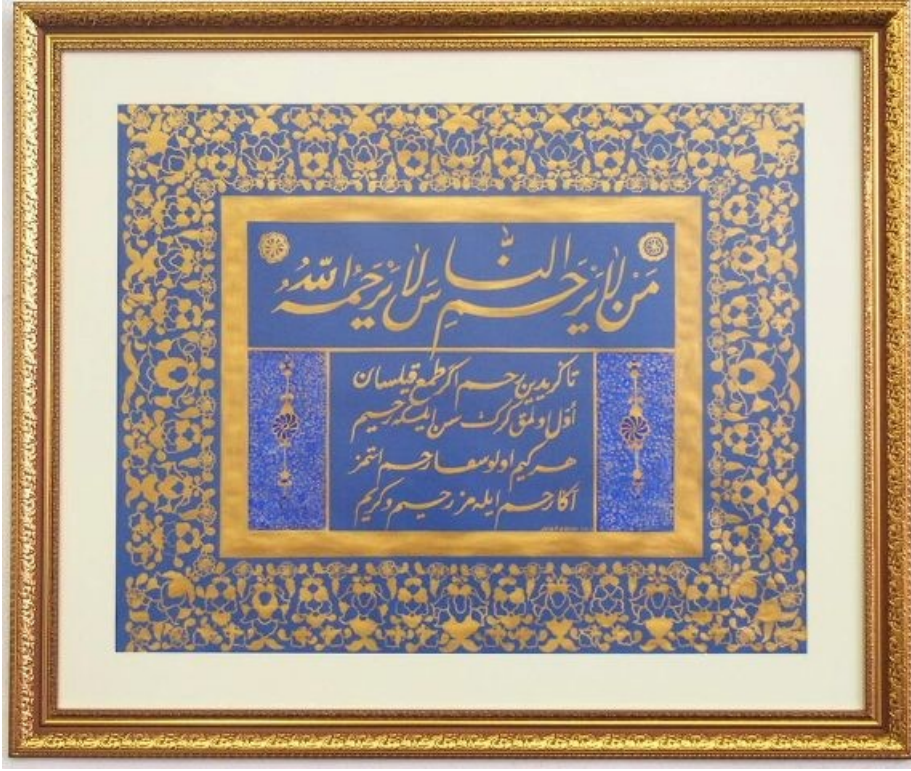 مَنْ لَا يَرْحَمِ النَّاسَ لَا يَرْحَمْهُ اللّٰهُ
تاكریدن رحم اكر طمع قیلسان
اوّل اولمق كرك سن ایلكه رحیم
هر كیم اولوسغا رحم ایتمز
آكا رحم ایلەمز رحیم و كریم